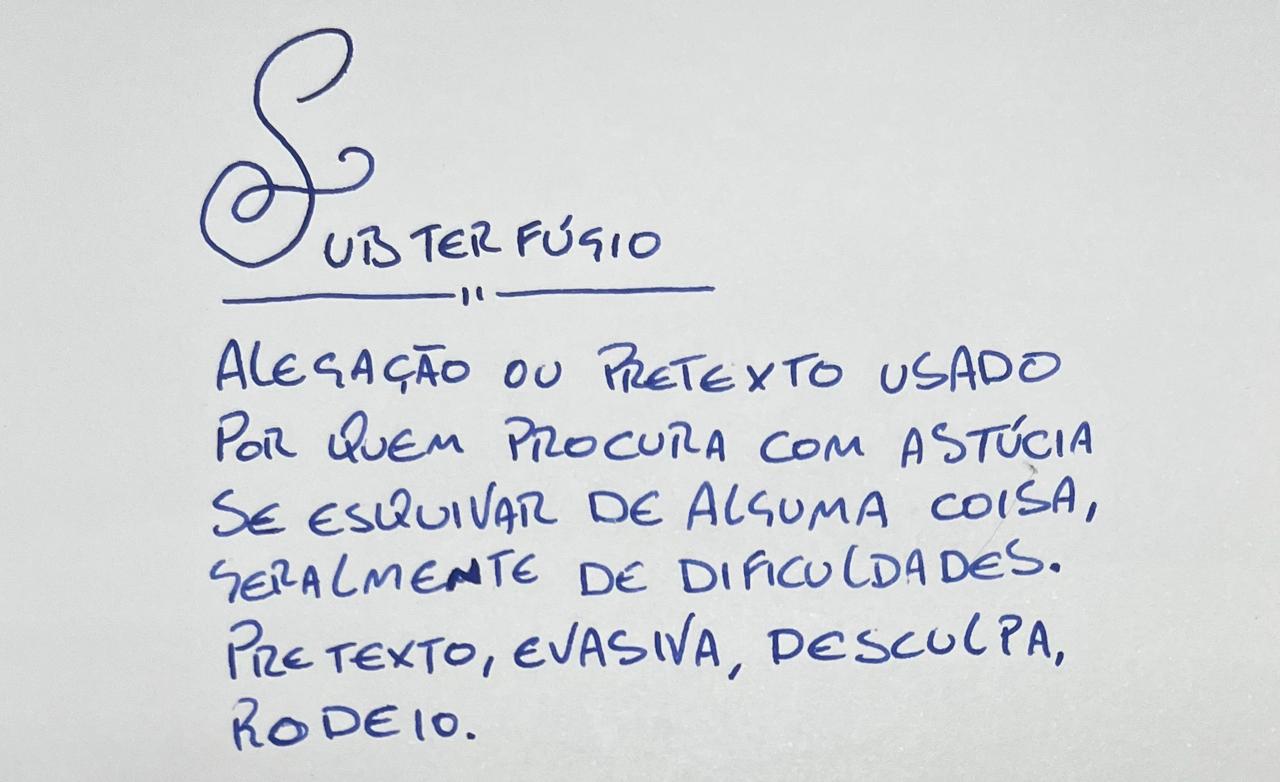 SUBTERFÚGIO
ALEGAÇÃO OU PRETEXTO USADO
POR QUEM PROCURA COM ASTÚCIA
SE ESQUIVAR DE ALGUMA COISA,
GERALMENTE DE DIFICULDADES.
PRETEXTO, EVASIVA, DESCULPA,
RODEIO.